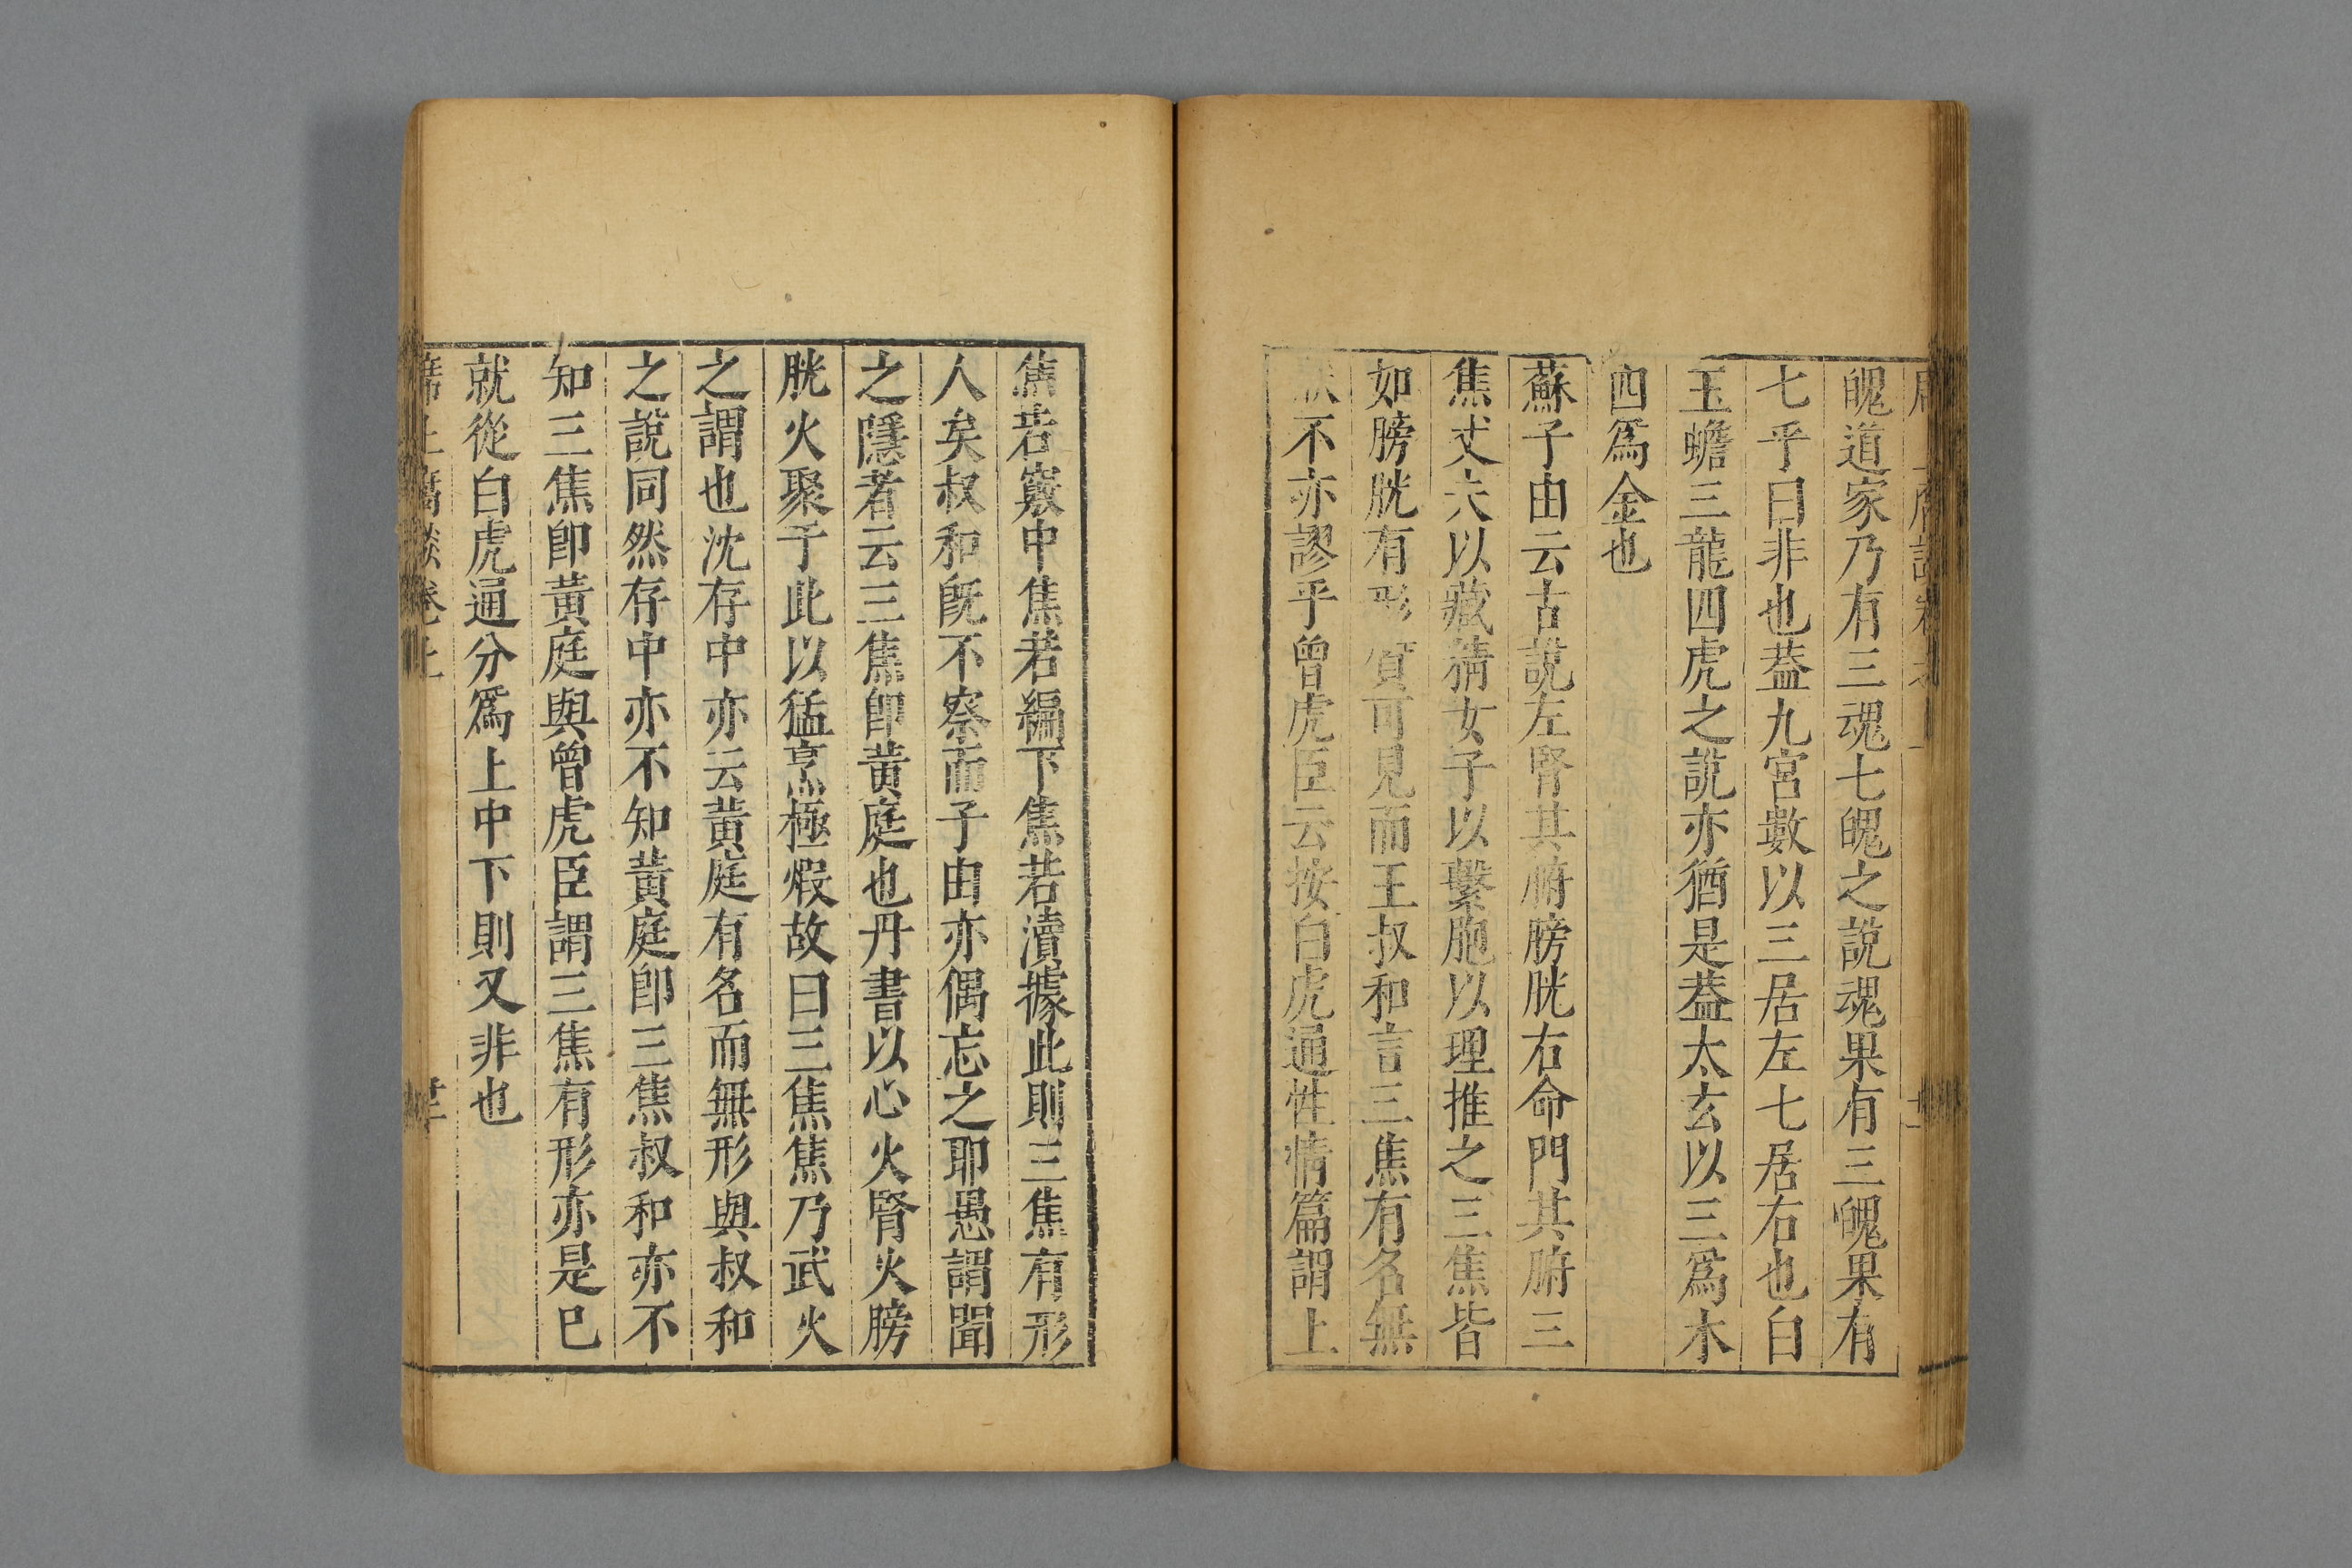 魄道家乃有三魂七魄之說魂果有三魄果有
七乎曰非也葢九宮數以三居左七居右也白
玉蟾三龍四虎之說亦猶是葢太玄以三爲木
四爲金也
蘇子由云古說左腎其腑膀胱右命門其腑三
焦丈夫以藏精女子以繫胞以理推之三焦皆
如膀胱有形質可見而王叔和言三焦有名無
不亦謬乎曾虎臣云按白虎通性情篇謂上
焦若竅中焦若編下焦若瀆據此則三焦有形
人矣叔和旣不察而子由亦偶忘之耶愚謂聞
之隱者云三焦卽黃庭也丹書以心火腎火膀
胱火聚于此以猛烹極煆故曰三焦焦乃武火
之謂也沈存中亦云黃庭有名而無形與叔和
之說同然存中亦不知黃庭卽三焦叔和亦不
知三焦卽黃庭與曾虎臣謂三焦有形亦是已
就從白虎通分爲上中下則又非也
席上腐談卷上